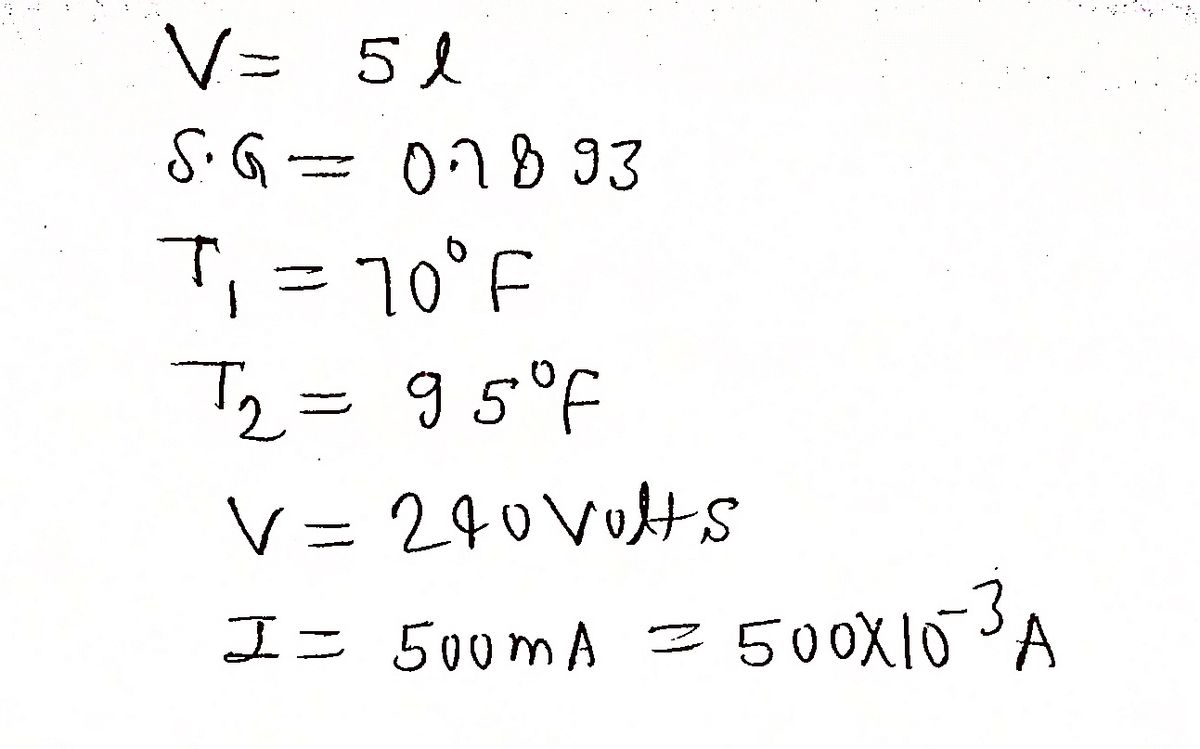 V = 5 l
S.G = 0.7893
T₁ = 70°F
T₂ = 95°F
V = 240 Volts
I = 500 mA = 500X10⁻³ A